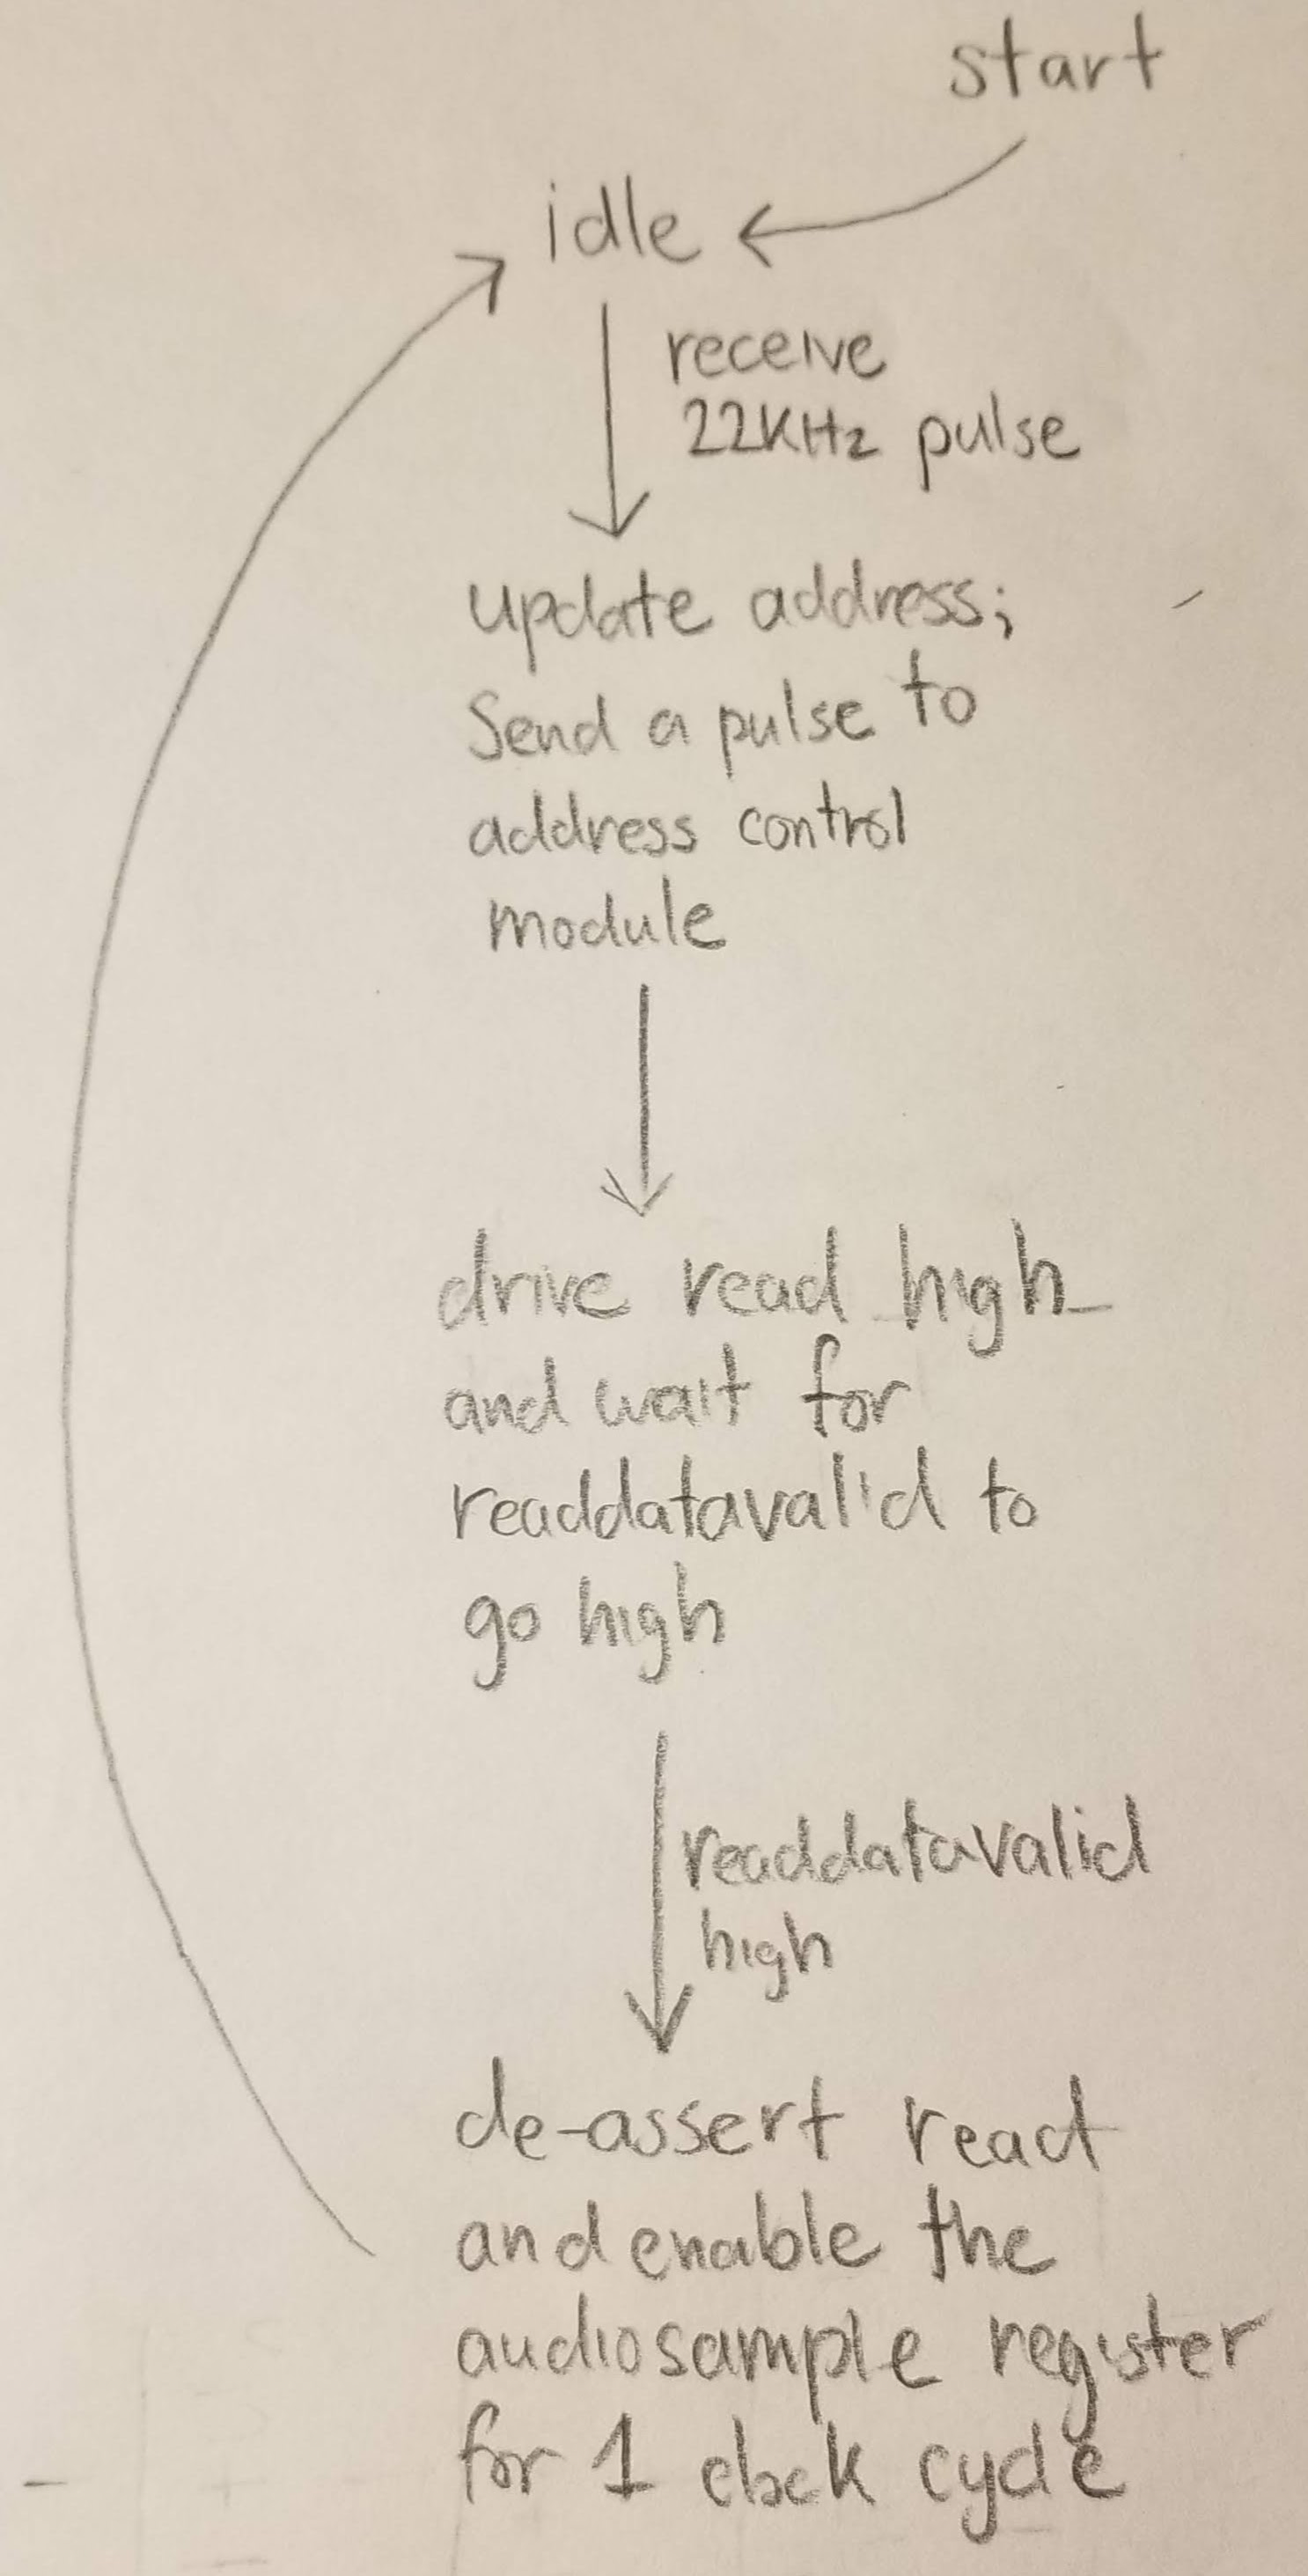 start
idle
receive
22KHz pulse
update address;
Send a pulse to
address control
module
drive read high
and wait for
readdatavalid to
go high
readdatavalid
high
de-assert read
and enable the
audiosample register
for 1 clock cycle